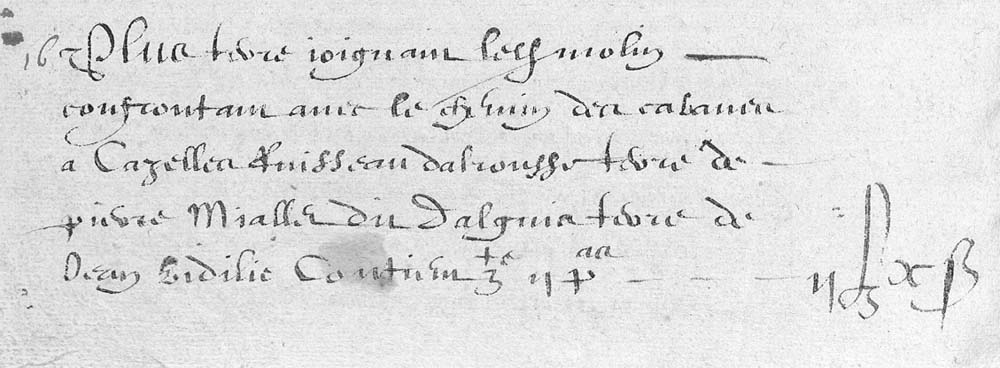 16 Plus terre joignant led molin
confrontant avec le chemin des cabanes
a Cazelles Ruisseau dalrousse terre de
pierre Mialles dit Dalguie terre de
Jean Vidilie Contient